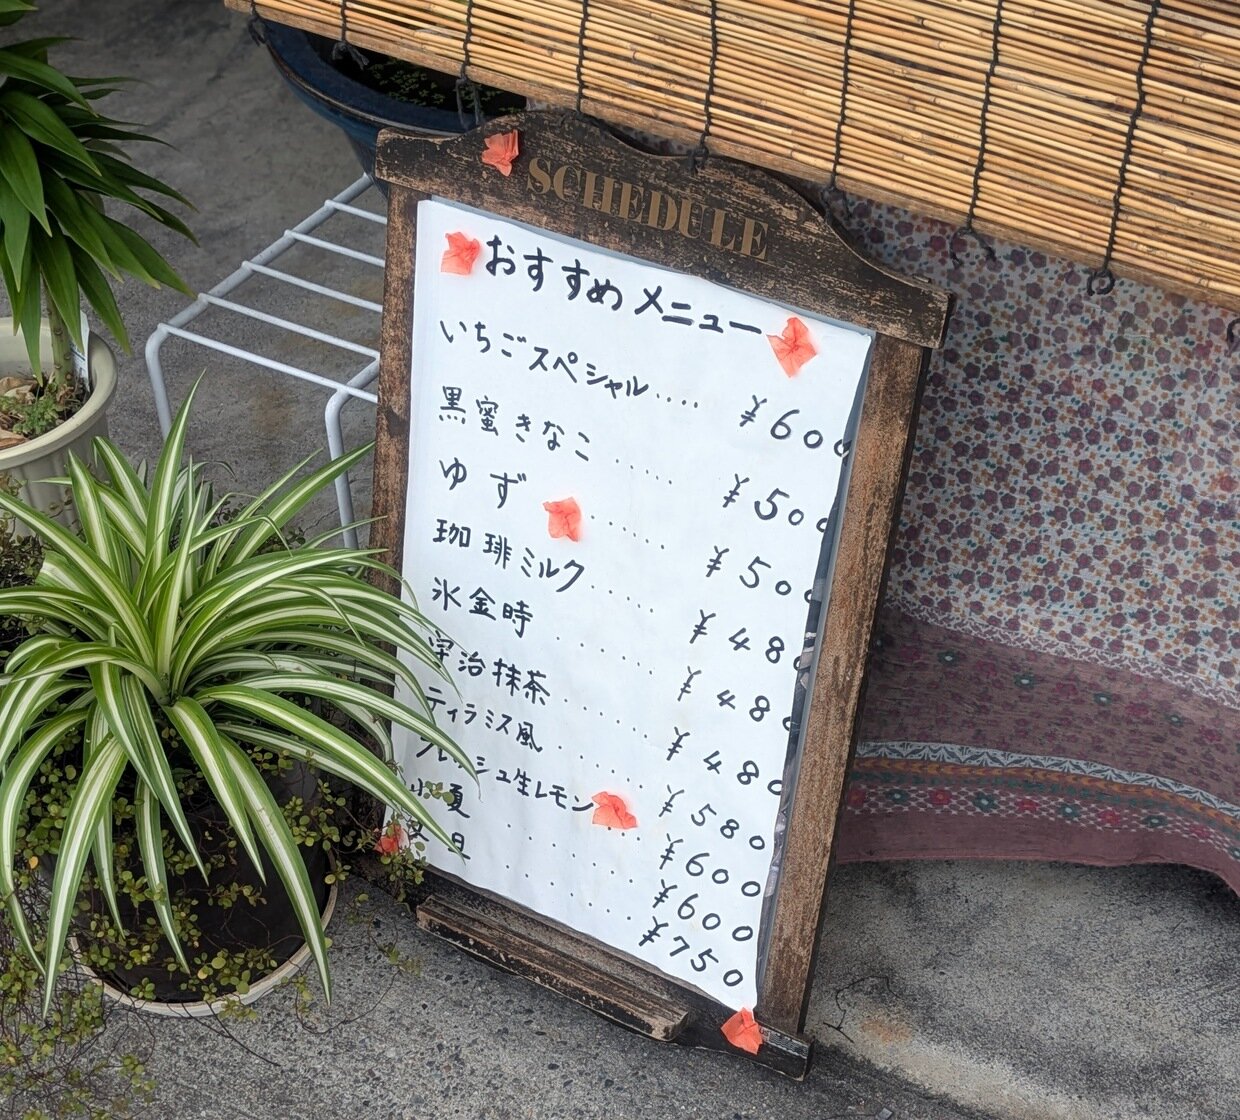 SCHEDULE
おすすめメニュー
いちごスペシャル.... ¥600
黒蜜きなこ ..... ¥500
ゆず ..... ¥500
珈琲ミルク..... ¥480
氷金時 ...... ¥480
宇治抹茶 ...... ¥480
ティラミス風 ..... ¥580
フレッシュ生レモン .. ¥600
小夏 ...... ¥600
...... ¥750